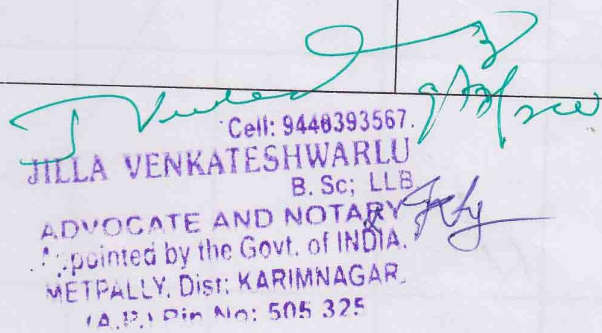 Cell: 9448393567.
JILLA VENKATESHWARLU
B. Sc; LLB
ADVOCATE AND NOTARY
Appointed by the Govt. of INDIA.
METPALLY, Dist: KARIMNAGAR.
(A.P.) Pin No: 505 325